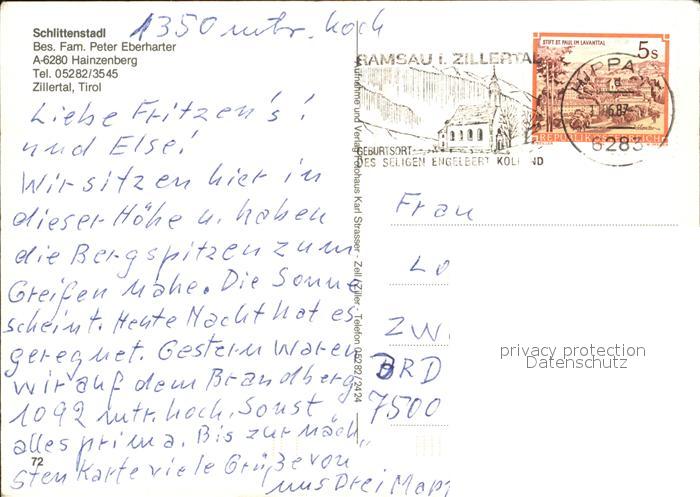 1350 mtr. hoch
Schlittenstadl
Bes. Fam. Peter Eberharter
A-6280 Hainzenberg
Tel. 05282/3545
Zillertal, Tirol
Liebe Fritzen's!
und Else!
Wir sitzen hier in
dieser Höhe u. haben
die Bergspitzen zum
Greifen nahe. Die Sonne
scheint. Heute Nacht hat es
geregnet. Gestern waren
wir auf dem Brandberg
1092 mtr. hoch. Sonst
alles prima. Bis zur näch
sten Karte viele Grüße von
uns Drei
72
Aufnahme und Verlag Fotohaus Karl Strasser - Zell/Ziller - Telefon 05282/2424
RAMSAU i. ZILLERTAL
GEBURTSORT
DES SELIGEN ENGELBERT KOLLAND
STIFT ST. PAUL IM LAVANTTAL
5s
REPUBLIK ÖSTERREICH
HIPPA
6283
Frau
Lo
ZW
BRD
7500
privacy protection
Datenschutz